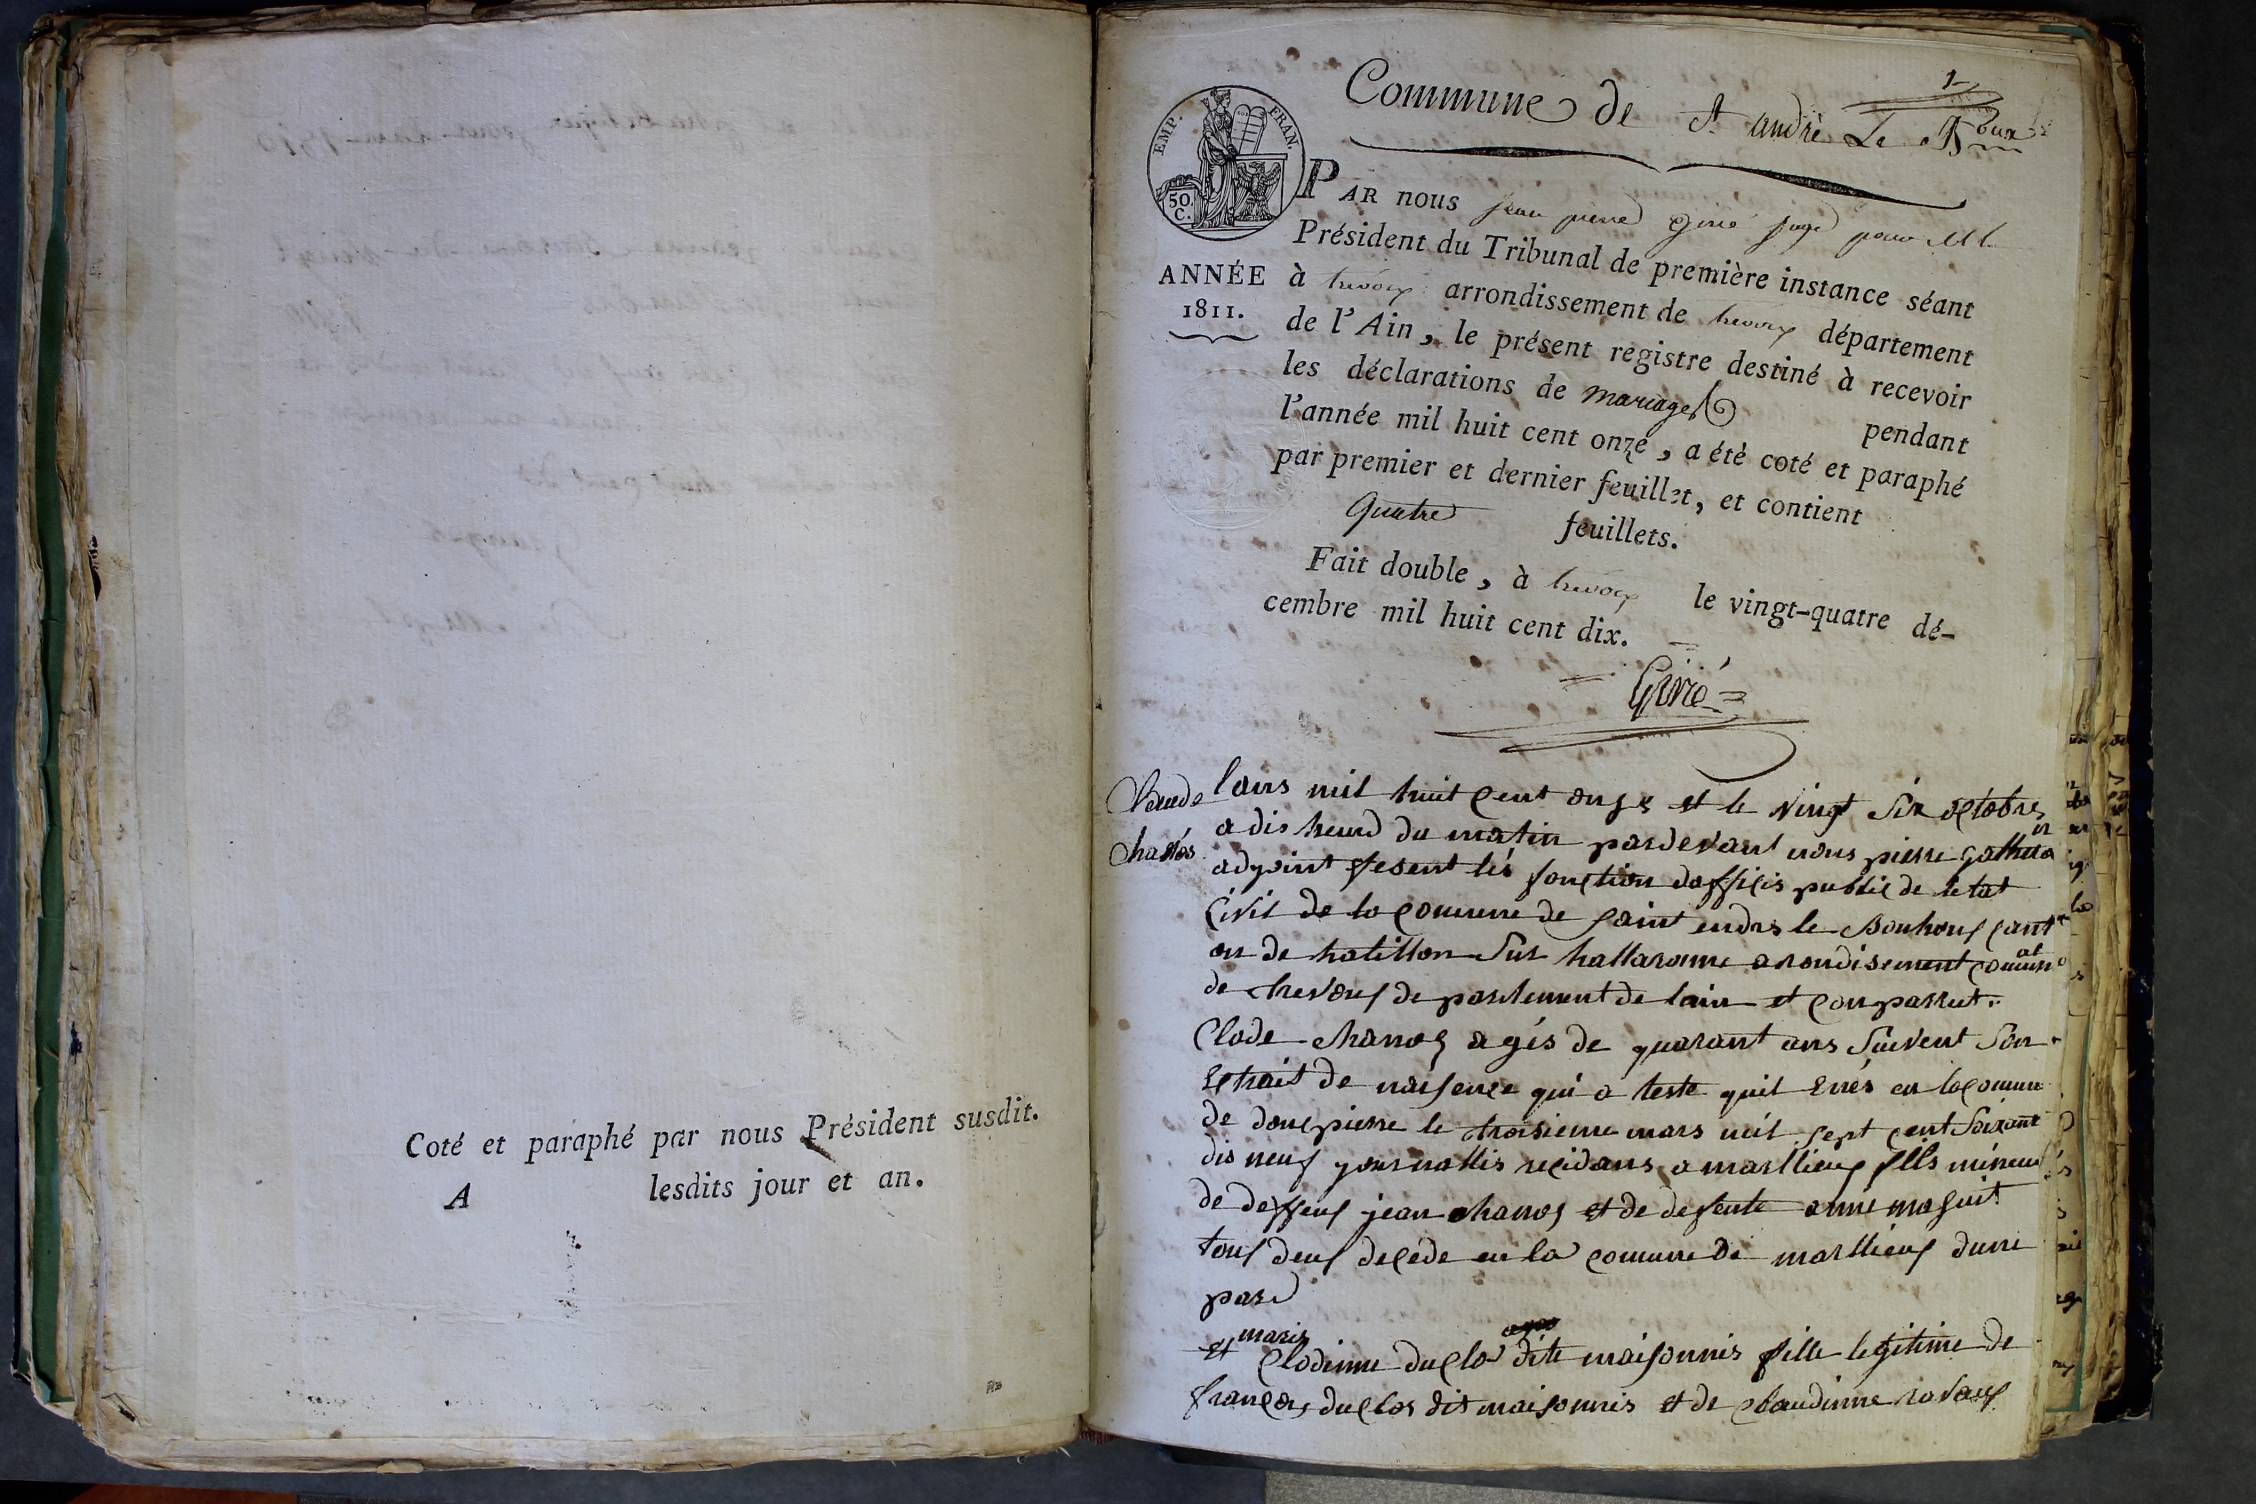 Coté et paraphé par nous Président susdit.
A lesdits jour et an.
1
Commune de St andré Le Boux
EMP. FRAN.
50.
C.
PAR nous jean pierre Girié juge pour M. le
Président du Tribunal de première instance séant
ANNÉE
1811.
à trevoux arrondissement de trevoux département
de l'Ain, le présent registre destiné à recevoir
les déclarations de mariages pendant
l'année mil huit cent onze, a été coté et paraphé
par premier et dernier feuillet, et contient
Quatre feuillets.
Fait double, à trevoux le vingt-quatre dé-
cembre mil huit cent dix.
Girié
chanos
lans mil huit cent onze et le vingt six octobre
a dis heurd du matin pardevant nous pierre
adjoint fesent lés fonction dofficis public de letat
civil de la comunne de saint endre le Bouhous cant
on de hatillon sur hallaronne arondisement comun al
de trevous de partement de lain et conparrut
Clode chanos agés de quarant ans suivent son
extrait de naisence qui a teste quil énés en la comun
de donpierre le troisieme mars mil sept cent soixant
dis neuf journallis residans a marllieux fills mineur
de deffeus jean chanos et de defente anne
tous deus decede en la comune de marllieux dune
pard
et marie clodinne duclo dite maisonnis fille legitime de
françois duclos dit maisonnis et de claudinne